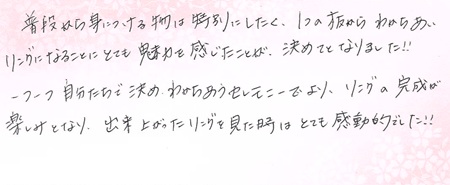 普段から身につける物は特別にしたく、1つの板から わかちあい
リングになることにとても魅力を感じたことが、決めてとなりました!!
一つ一つ自分たちで決め、わかちあうセレモニーでより、リングの完成が
楽しみとなり、出来上がったリングを見た時は とても感動的でした!!